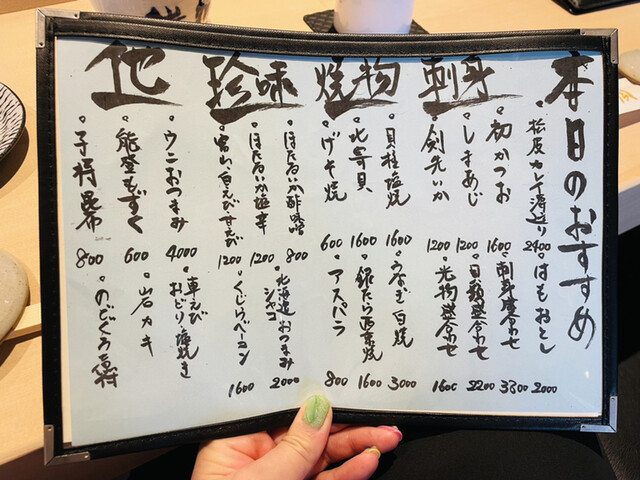 本日のおすすめ
刺身
松皮カレイ薄造り 2400
はもおとし 2000
初かつお 1600
刺身盛合わせ 3300
しまあじ 1200
貝類盛合わせ 2200
剣先いか 1200
光物盛合わせ 1600
焼物
貝柱塩焼 1600
うなぎ白焼 3000
北寄貝 1600
銀たら西京焼 1600
げそ焼 600
アスパラ 800
珍味
ほたるいか酢味噌 800
北海道シャコ おつまみ 2000
ほたるいか塩辛 1200
くじらベーコン 1600
富山、白えび・甘えび 1200
他
ウニおつまみ 4000
車えび おどり・塩焼き
能登もずく 600
岩ガキ
子持昆布 800
のどぐろ